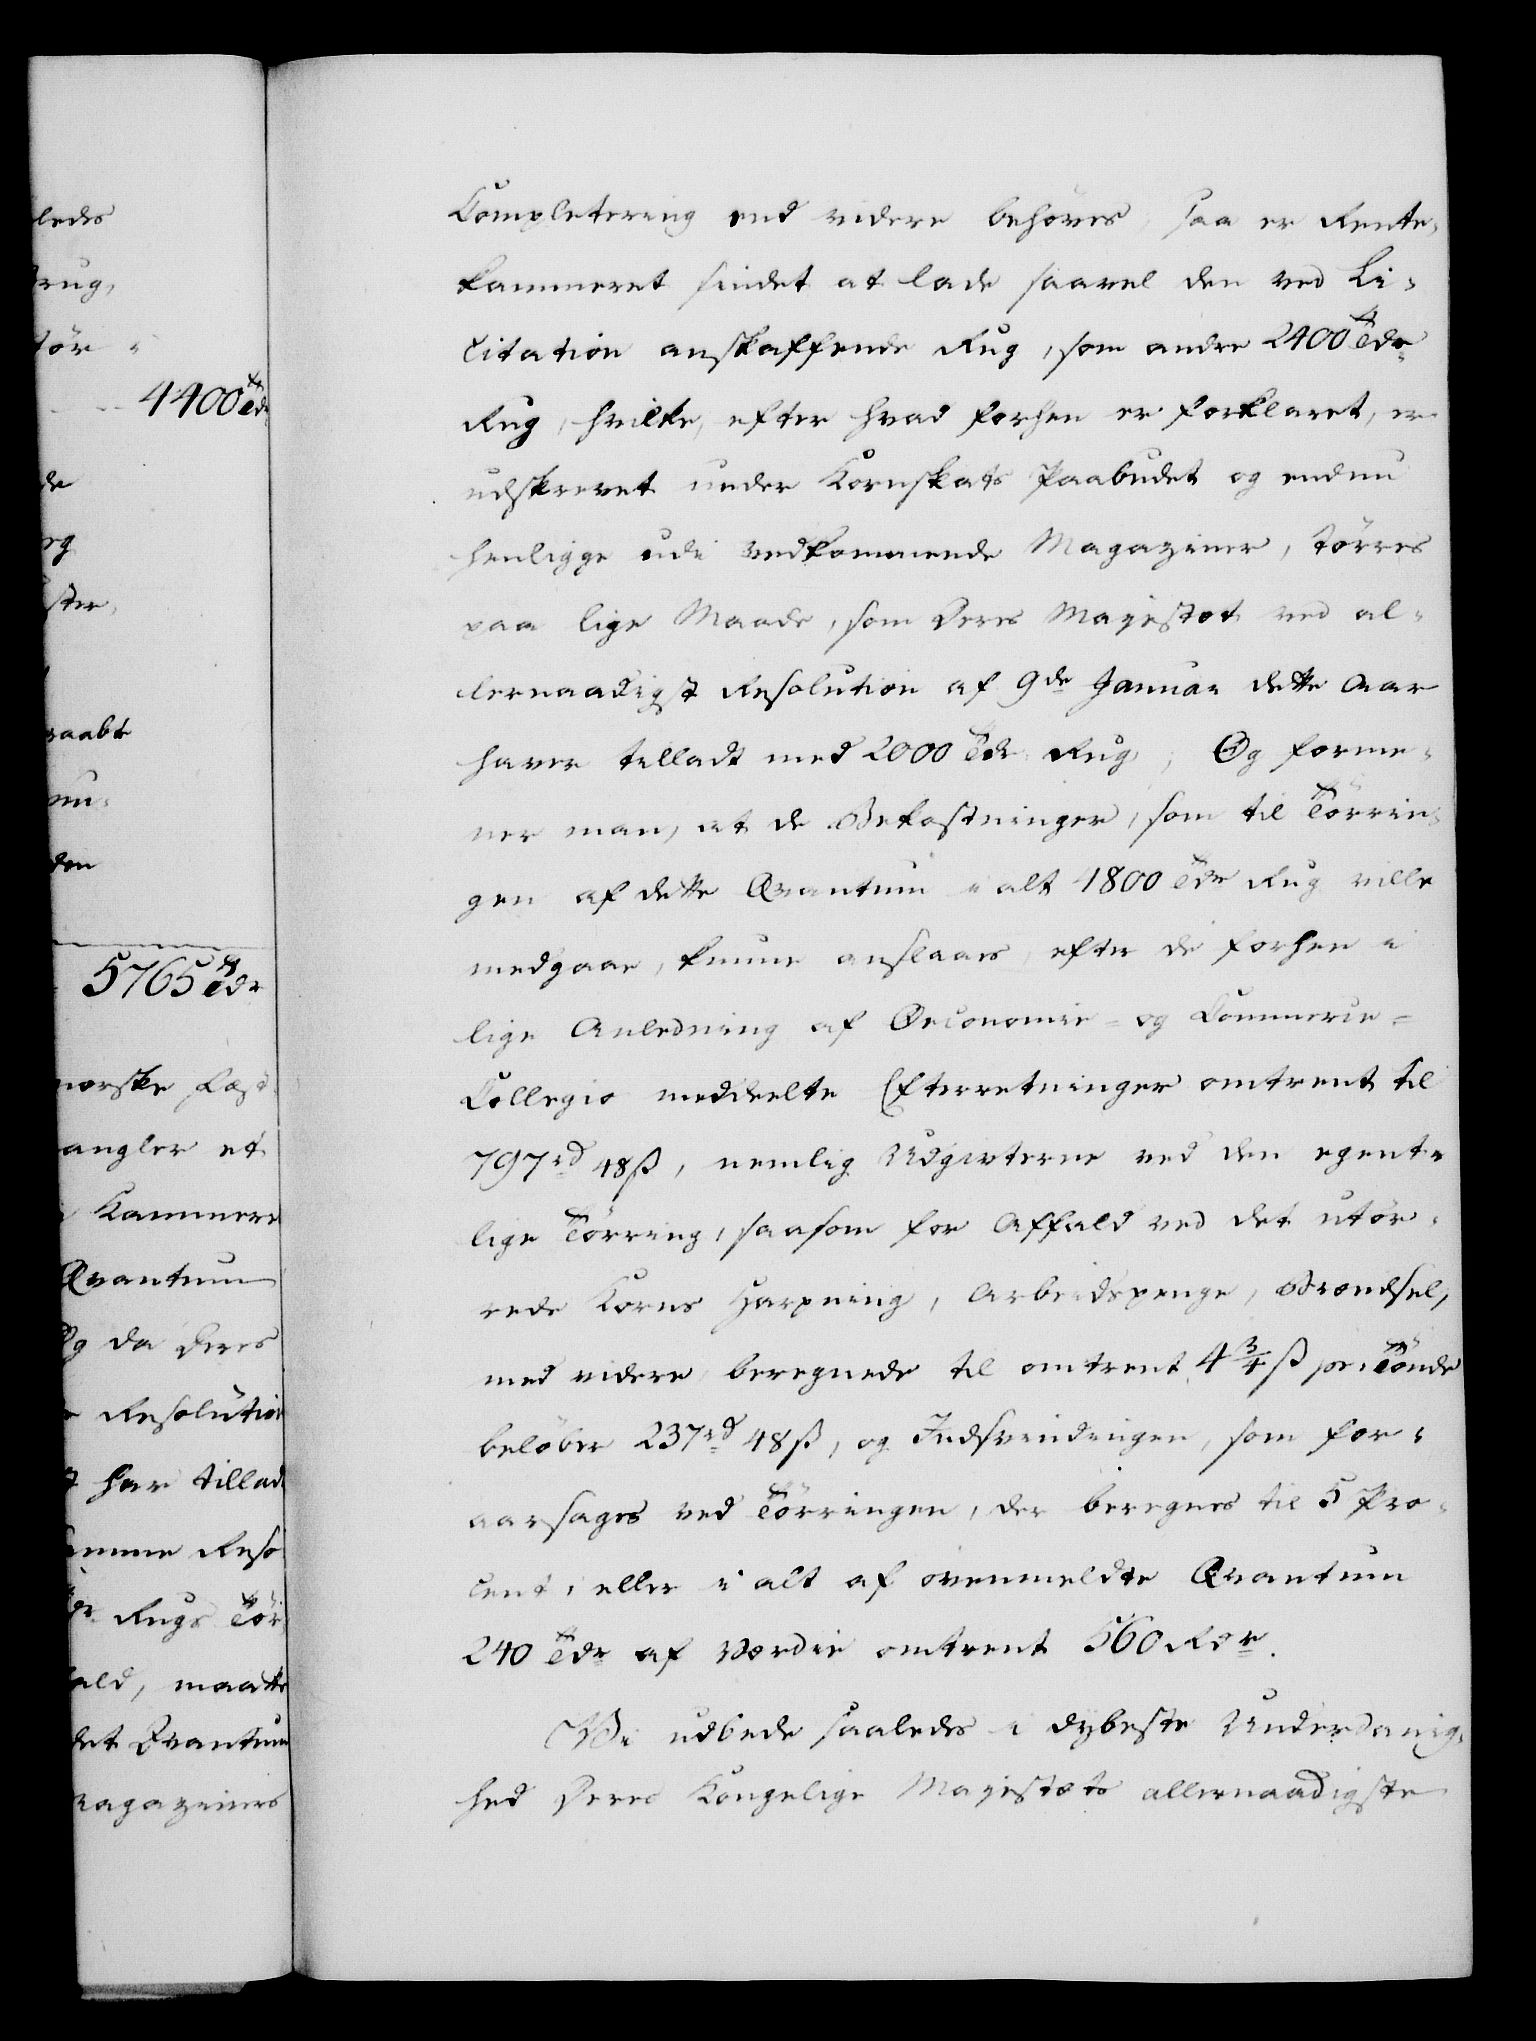 leds
Brug,
tör
4400 Tdr
de
rg
ster,
raabt
nu-
den
5765 Tdr
norske Fæst
angler et
Kammere
Qvantum
Og da Deres
Resolution
har tillad
samme Reso
Rugs Tör
ald, maatte
det Qvantum
Magaziners
Completering end videre behöves, saa er Rente-
kammeret sindet at lade saavel den ved Li-
citation anskaffende Rug, som andre 2400 Tdr
Rug, hvilke, efter hvad forhen er forklaret, er
udskrevet under Kornskats Paabudet og endnu
henligge udi vedkommende Magaziner, törres
paa lige Maade, som Deres Majestæt ved al-
lernaadigst Resolution af 9de Januar dette Aar
haver tilladt med 2000 Tdr Rug; Og forme-
ner man, at de Bekostninger, som til Törrin-
gen af dette Qvantum i alt 4800 Tdr Rug ville
medgaae, kunne anslaaes, efter de forhen i
lige Anledning af Oeconomie- og Commerce-
Collegio meddeelte Efterretninger omtrent til
797 rd 48 ß, nemlig Udgivterne ved den egent-
lige Törring, saasom for Affald ved det utör-
rede Korns Harpning, Arbeidspenge, Brændsel,
med videre, beregnede til omtrent 4 3/4 ß pr Tönde
belöber 237 rd 48 ß, og Indsvindingen, som for-
aarsages ved Törringen, der beregnes til 5 Pro-
cent, eller i alt af ovenmeldte Qvantum
240 Tdr af Værdie omtrent 560 Rdr.
Vi udbede saaledes i dybeste Underdanig-
hed Deres Kongelige Majestæts allernaadigste